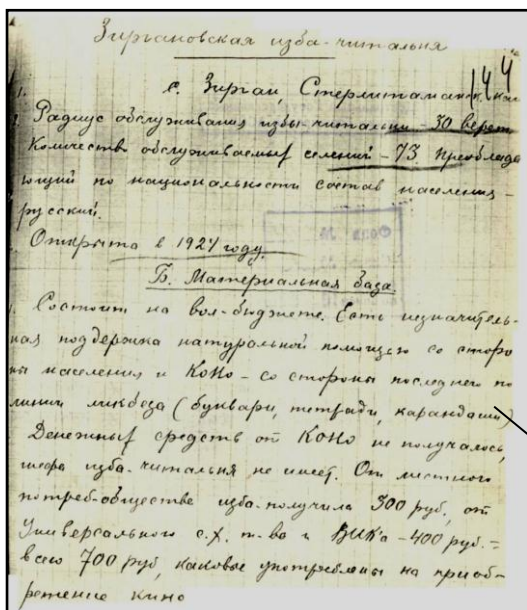 Зиргановская изба-читальня
144
с. Зирган, Стерлитаманск. кан
Радиус обслуживания избы-читальни - 30 верст
Количество обслуживаемых селений - 73 преоблада
ющий по национальности состав населения -
русский.
Открыта в 1924 году
Б. Материальная база
Состоит на вол-бюджете. Есть незначитель-
ная поддержка натуральной помощью со сторо
ны населения и КОНО - со стороны последнего по
линии ликбеза (буквари, тетради, карандаши)
Денежных средств от КОНО не получалось,
шефа изба-читальня не имеет. От местного
потреб-общества изба получила 300 руб., от
Универсального с.х. т-ва и ВИКа - 400 руб. =
всего 700 руб, каковые употреблены на приоб-
ретение кино